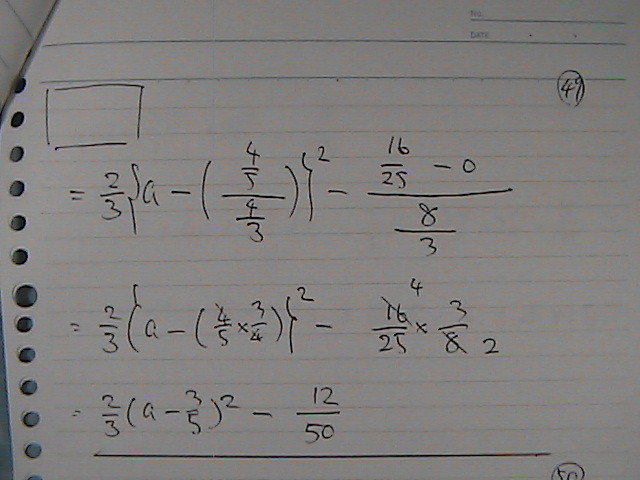 NO.
DATE
49
= 2/3 { a - ( (4/5) / (4/3) ) }^2 - (16/25 - 0) / (8/3)
= 2/3 { a - ( 4/5 × 3/4 ) }^2 - 16/25 × 3/8 4 2
= 2/3 ( a - 3/5 )^2 - 12/50
50